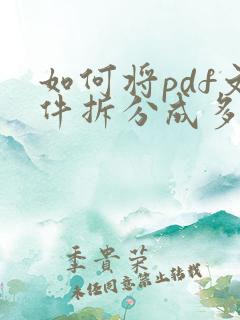 如何将pdf文
件拆分成多
季贵荣
未经同意禁止转载